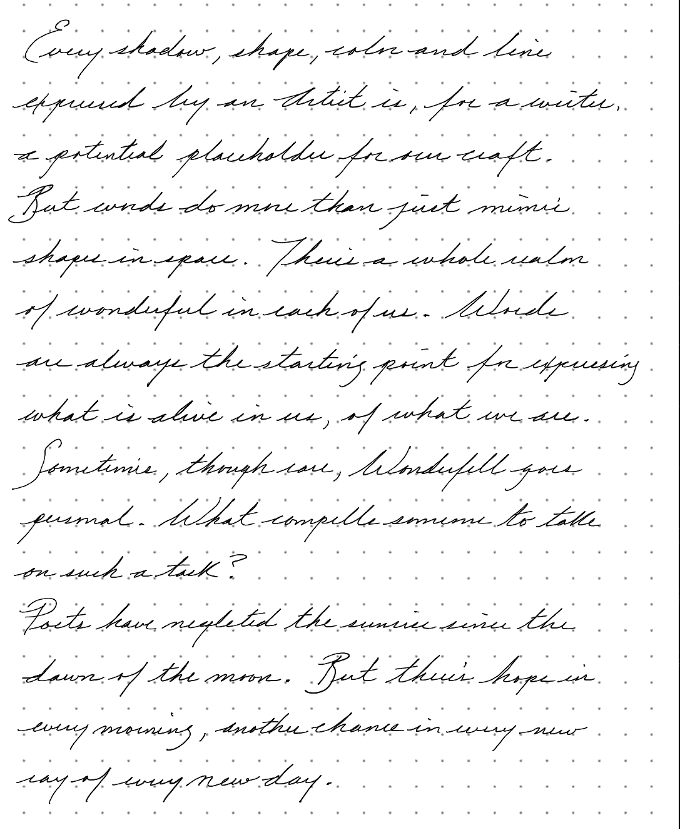 Every shadow, shape, color and line
expressed by an Artist is, for a writer,
a potential placeholder for our craft.
But words do more than just mimic
shapes in space. There's a whole realm
of wonderful in each of us. Words
are always the starting point for expressing
what is alive in us, of what we are.
Sometimes, though rare, Wonderfull goes
personal. What compells someone to take
on such a task?
Poets have negleted the sunrise since the
dawn of the moon. But there's hope in
every morning, another chance in every new
ray of every new day.